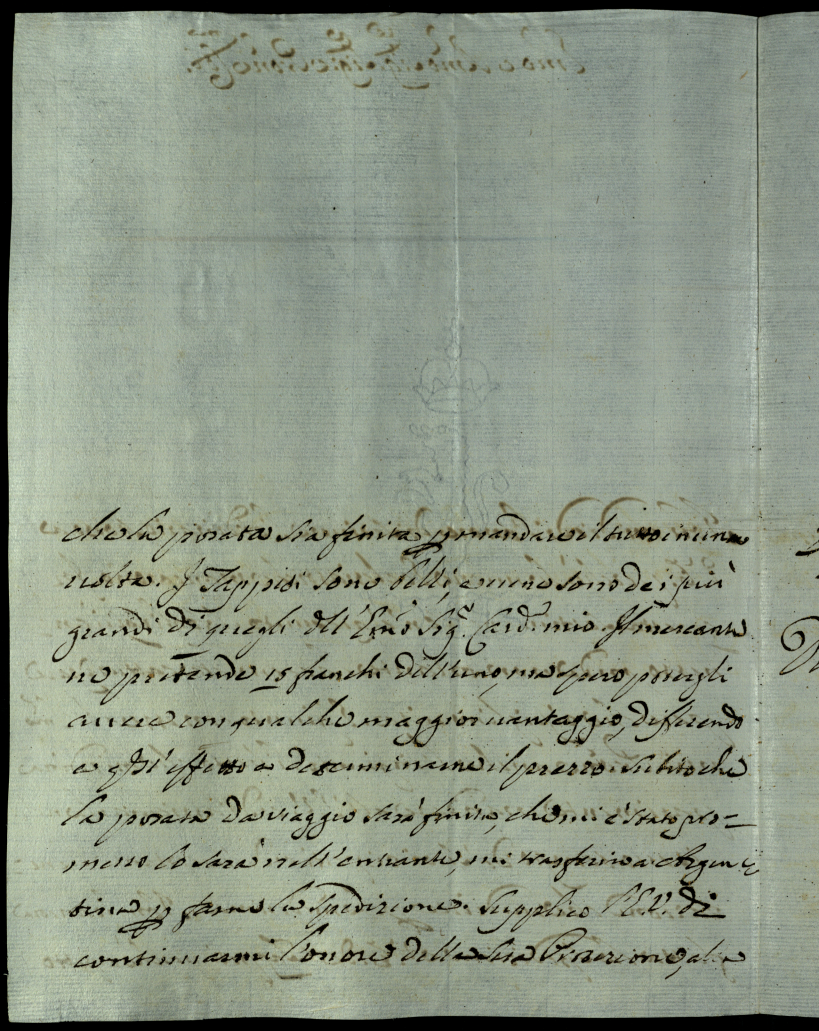 che la posata sia finita p mandare il tutto in una
volta. I Tappidi sono belli, e sono de i più
grandi di quegli dell' Emo Sigr. Card.e mio. Il mercante
ne pretende 15 franchi dell'uno, ma spero potergli
avere con qualche maggior vantaggio, differendo
a qst' effetto a determinarne il prezzo. Subito che
la posata da viaggio sarà finita, che mi è stato pro=
messo lo sarà nell'entrante, mi trasferirò a Argen=
tina p farne la spedizione. Supplico l'E.V. di
continuarmi l'onore della Sua Protezione, alla